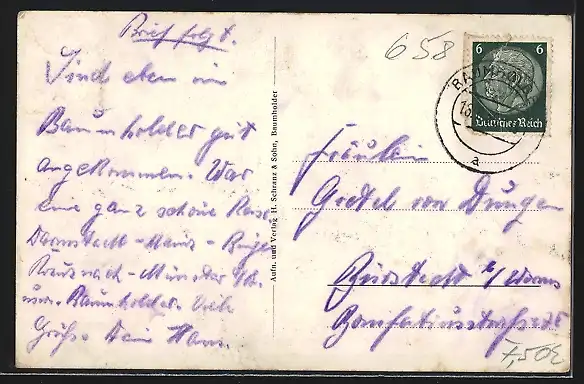 Brief folgt.
Sind eben in
Baumholder gut
angekommen. War
eine ganz schöne Reise
Darmstadt - Mainz - Bingen
Kreuznach - Münster
usw. Baumholder. Viele
Grüße Dein Hans.
Aufn. und Verlag H. Schranz & Sohn, Baumholder
658
6 6
Deutsches Reich
BAUMHOLDER
a
Fräulein
Gretel von Dungen
Bürstadt b/ Worms
Bonifatiusstraße 75
7,50€